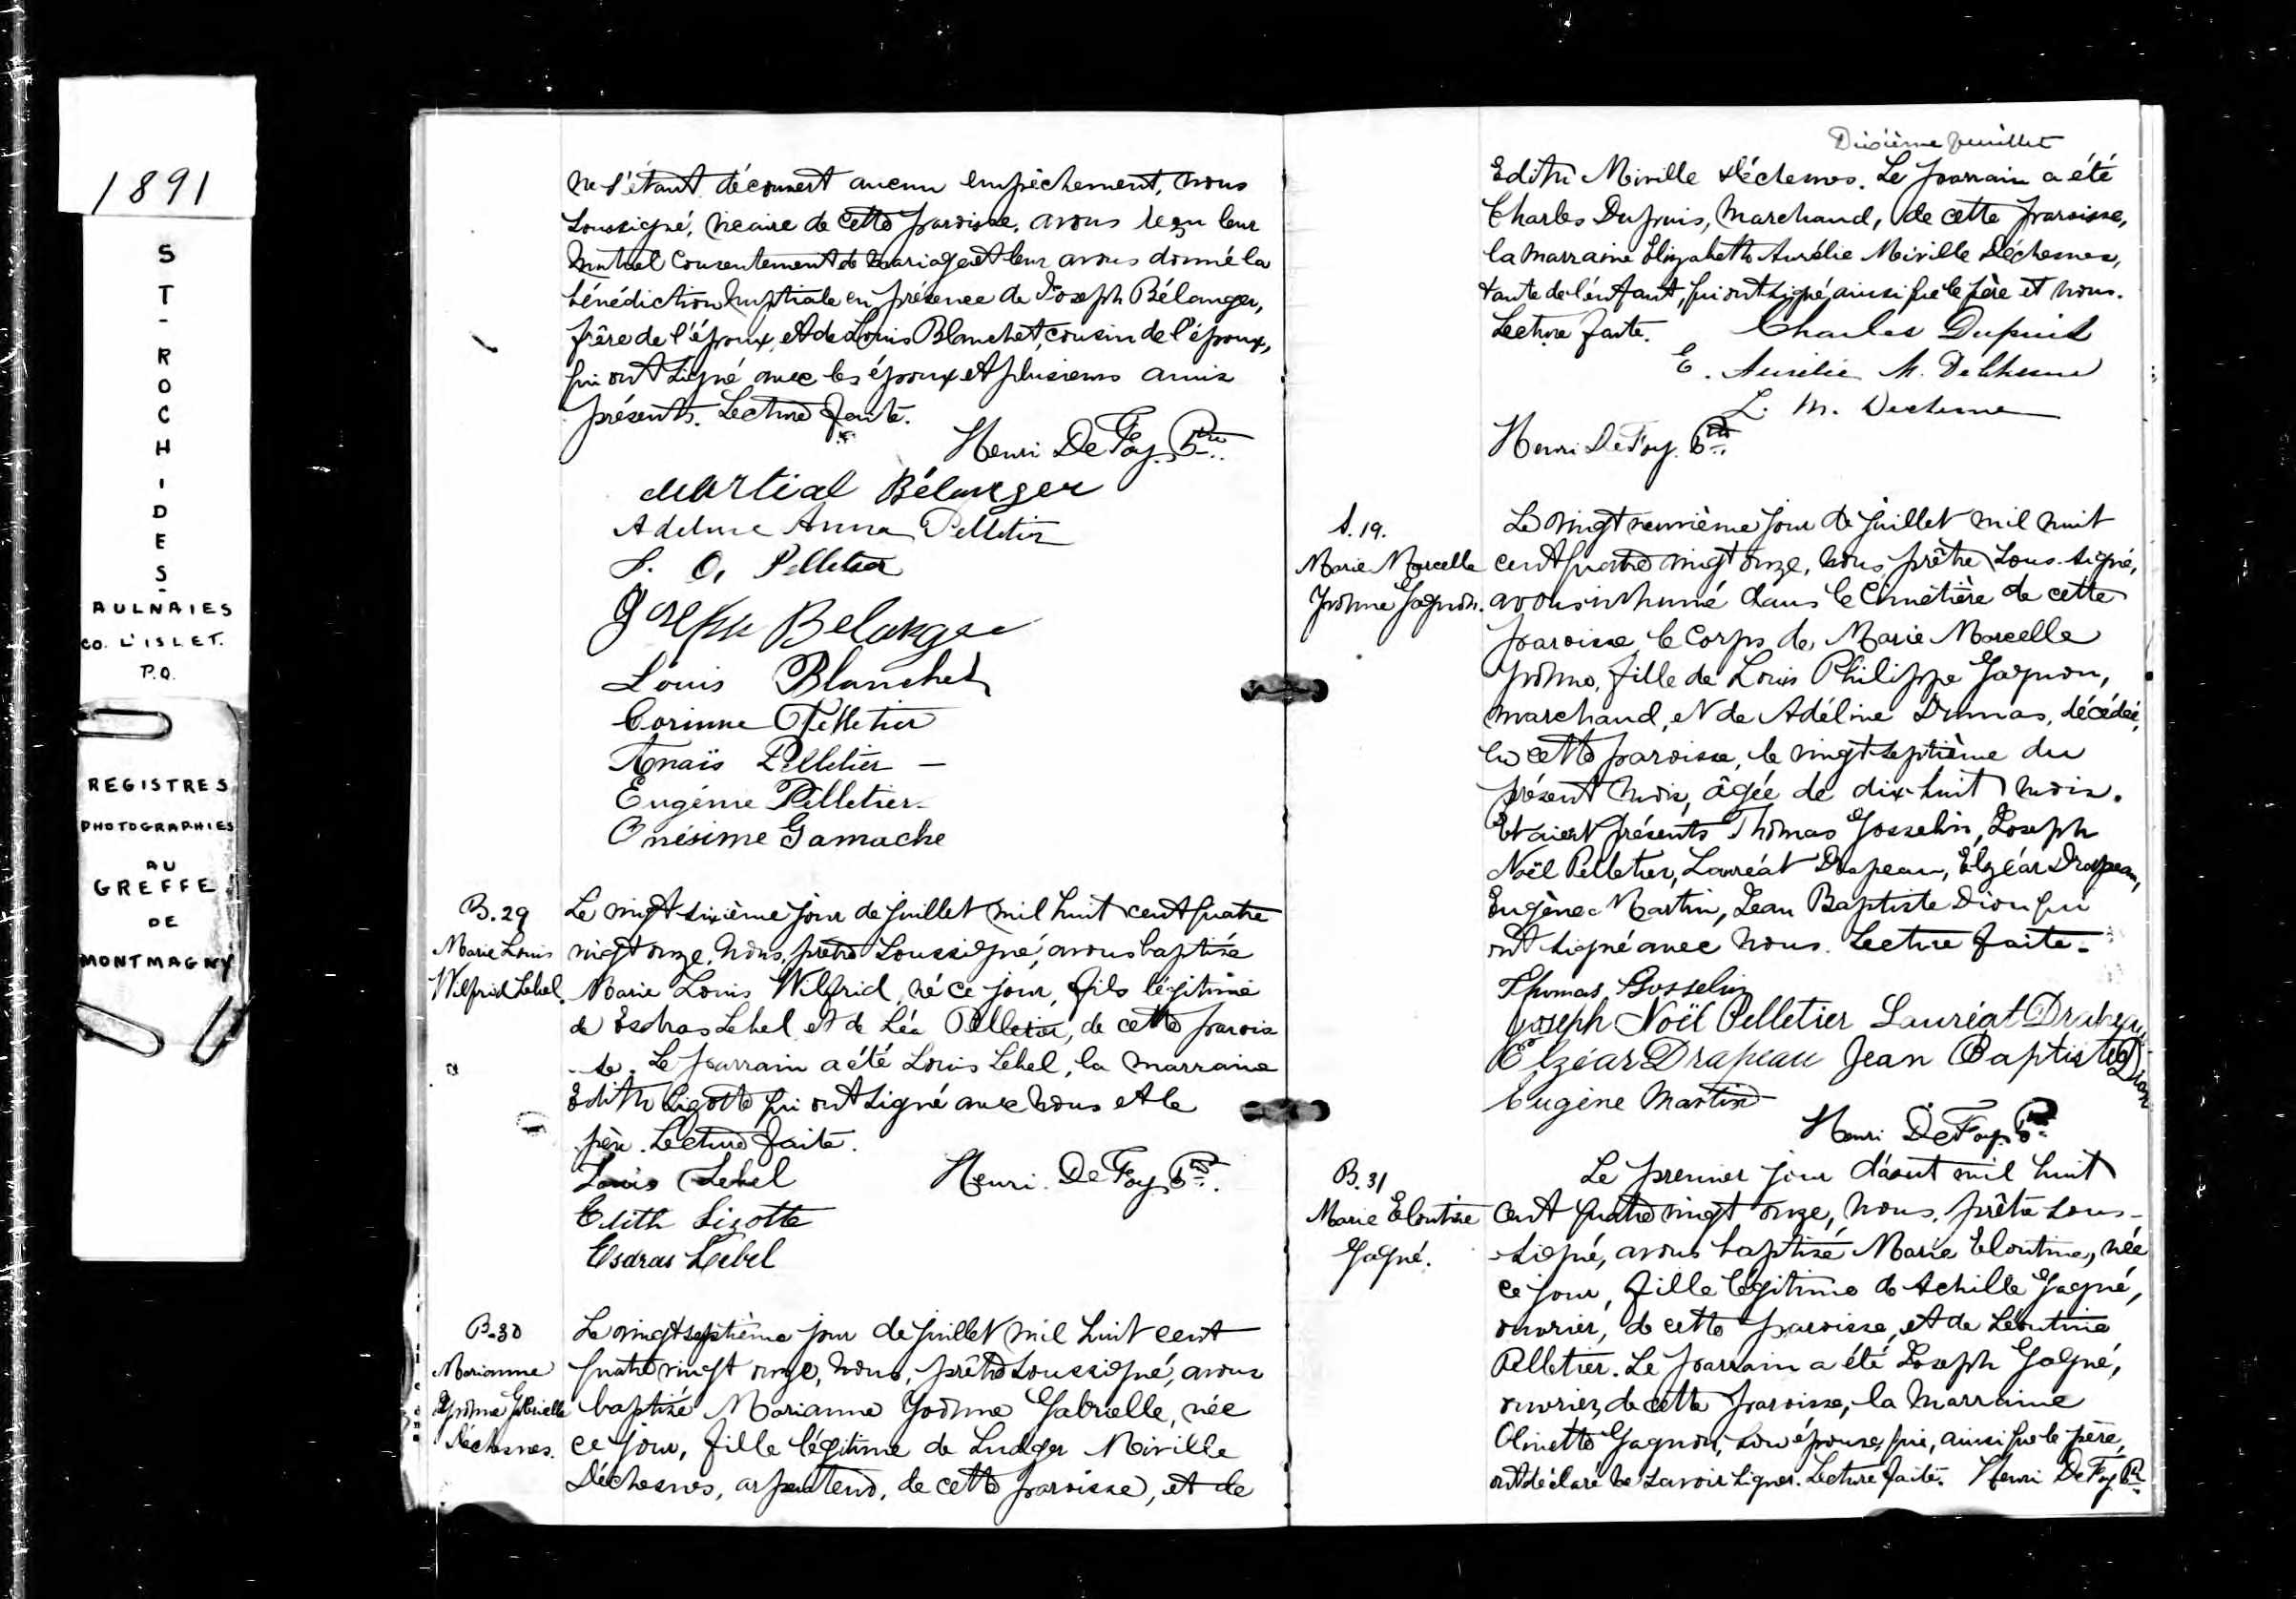 1891
ST-ROCH-DES-
AULNAIES
CO. L'ISLET.
P.Q.
REGISTRES
PHOTOGRAPHIES
AU
GREFFE
DE
MONTMAGNY
ne s'étant découvert aucun empêchement, nous
soussigné, vicaire de cette paroisse, avons reçu leur
mutuel consentement de mariage et leur avons donné la
bénédiction nuptiale en présence de Joseph Bélanger,
frère de l'époux, et de Louis Blanchet, cousin de l'époux,
qui ont signé avec les époux et plusieurs amis
présents. Lecture faite.
Henri DeFoy Ptre.
Martial Bélanger
Adeline Anna Pelletier
O. Pelletier
Joseph Belanger
Louis Blanchet
Corinne Pelletier
Anaïs Pelletier -
Eugénie Pelletier
Onésime Gamache
B. 29
Marie Louis
Wilfrid Lebel.
Le vingt-sixième jour de juillet mil huit cent quatre
vingt onze, nous, prêtre soussigné, avons baptisé
Marie Louis Wilfrid, né ce jour, fils légitime
de Esdras Lebel et de Léa Pelletier, de cette parois
-se. Le parrain a été Louis Lebel, la marraine
Edith Lizotte qui ont signé avec nous et le
père. Lecture faite.
Louis Lebel Henri DeFoy Ptre.
Edith Lizotte
Esdras Lebel
B. 30
Marianne
Yvonne Gabrielle
Déchesnes.
Le vingt septième jour de juillet mil huit cent
quatre vingt onze, nous, prêtre soussigné, avons
baptisé Marianne Yvonne Gabrielle, née
ce jour, fille légitime de Ludger Miville
Déchesnes, arpenteur, de cette paroisse, et de
Dixième feuillet
Edith Miville Déchesnes. Le parrain a été
Charles Dupuis, marchand, de cette paroisse,
la marraine Elizabeth Aurélie Miville Déchesnes,
tante de l'enfant, qui ont signé ainsi que le père et nous.
Lecture faite. Charles Dupuis
E. Aurélie M. Dechesne
L. M. Dechesne
Henri DeFoy Ptre.
S. 19.
Marie Marcelle
Yvonne Gagnon.
Le vingt neuvième jour de juillet mil huit
cent quatre vingt onze, nous, prêtre sous-signé,
avons inhumé dans le cimetière de cette
paroisse, le corps de Marie Marcelle
Yvonne, fille de Louis Philippe Gagnon,
marchand, et de Adéline Dumas, décédée,
en cette paroisse, le vingt-septième du
présent mois, âgée de dix-huit mois.
Etaient présents Thomas Gosselin, Joseph
Noël Pelletier, Lauréat Drapeau, Elzéar Drapeau,
Eugène Martin, Jean Baptiste Dion qui
ont signé avec nous. Lecture faite.
Thomas Gosselin
Joseph Noël Pelletier Lauréat Drapeau
Elzéar Drapeau Jean Baptiste Dion
Eugène Martin
Henri DeFoy Ptre
B. 31
Marie Eloutine
Gagné.
Le premier jour d'août mil huit
cent quatre vingt onze, nous, prêtre sous-
-signé, avons baptisé Marie Eloutine, née
ce jour, fille légitime de Achille Gagné,
ouvrier, de cette paroisse, et de Léontine
Pelletier. Le parrain a été Joseph Gagné,
ouvrier, de cette paroisse, la marraine
Olinette Gagnon, son épouse, qui, ainsi que le père,
ont déclaré ne savoir signer. Lecture faite. Henri DeFoy Ptre